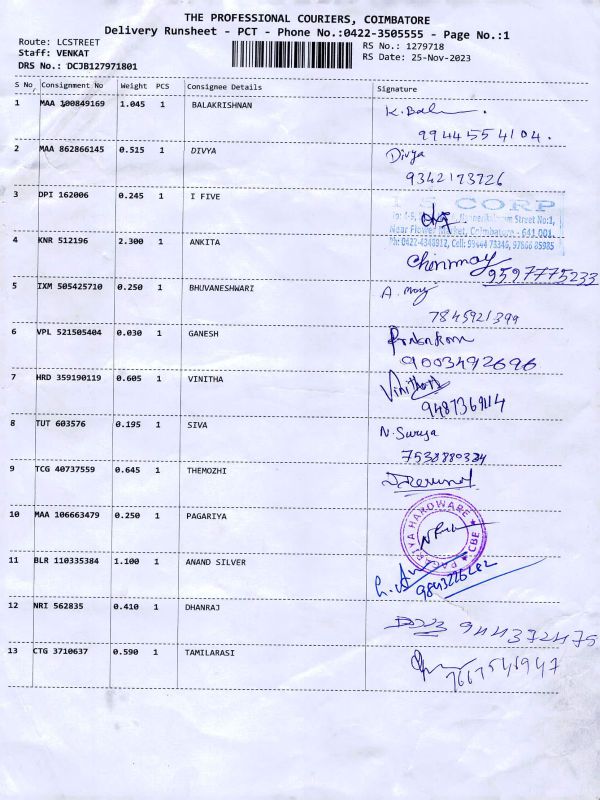 THE PROFESSIONAL COURIERS, COIMBATORE
Delivery Runsheet - PCT - Phone No.:0422-3505555 - Page No.:1
Route: LCSTREET
RS No.: 1279718
Staff: VENKAT
RS Date: 25-Nov-2023
DRS No.: DCJB127971801
S No Consignment No Weight PCS Consignee Details Signature
1 MAA 100849169 1.045 1 BALAKRISHNAN K. Bala
9944554104.
2 MAA 862866145 0.515 1 DIVYA Divya
9342173726
3 DPI 162006 0.245 1 I FIVE
CORP
Street No:1,
Near Flower Market, Coimbatore - 641 001.
Ph: 0422-4348912, Cell: 99444 73346, 97866 85985
4 KNR 512196 2.300 1 ANKITA Chinmay
9597775233
5 IXM 505425710 0.250 1 BHUVANESHWARI A.
7845921399
6 VPL 521505404 0.030 1 GANESH
9003492696
7 HRD 359190119 0.605 1 VINITHA Vinitha
8 TUT 603576 0.195 1 SIVA N. Surya
7538880334
9 TCG 40737559 0.645 1 THEMOZHI
10 MAA 106663479 0.250 1 PAGARIYA
PAGARIYA HARDWARE ★ CBE ★
11 BLR 110335384 1.100 1 ANAND SILVER
9843226282
12 NRI 562835 0.410 1 DHANRAJ
944372475
13 CTG 3710637 0.590 1 TAMILARASI
7667546947